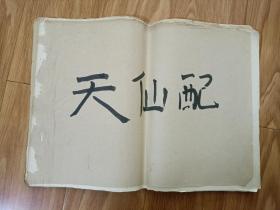 天仙配